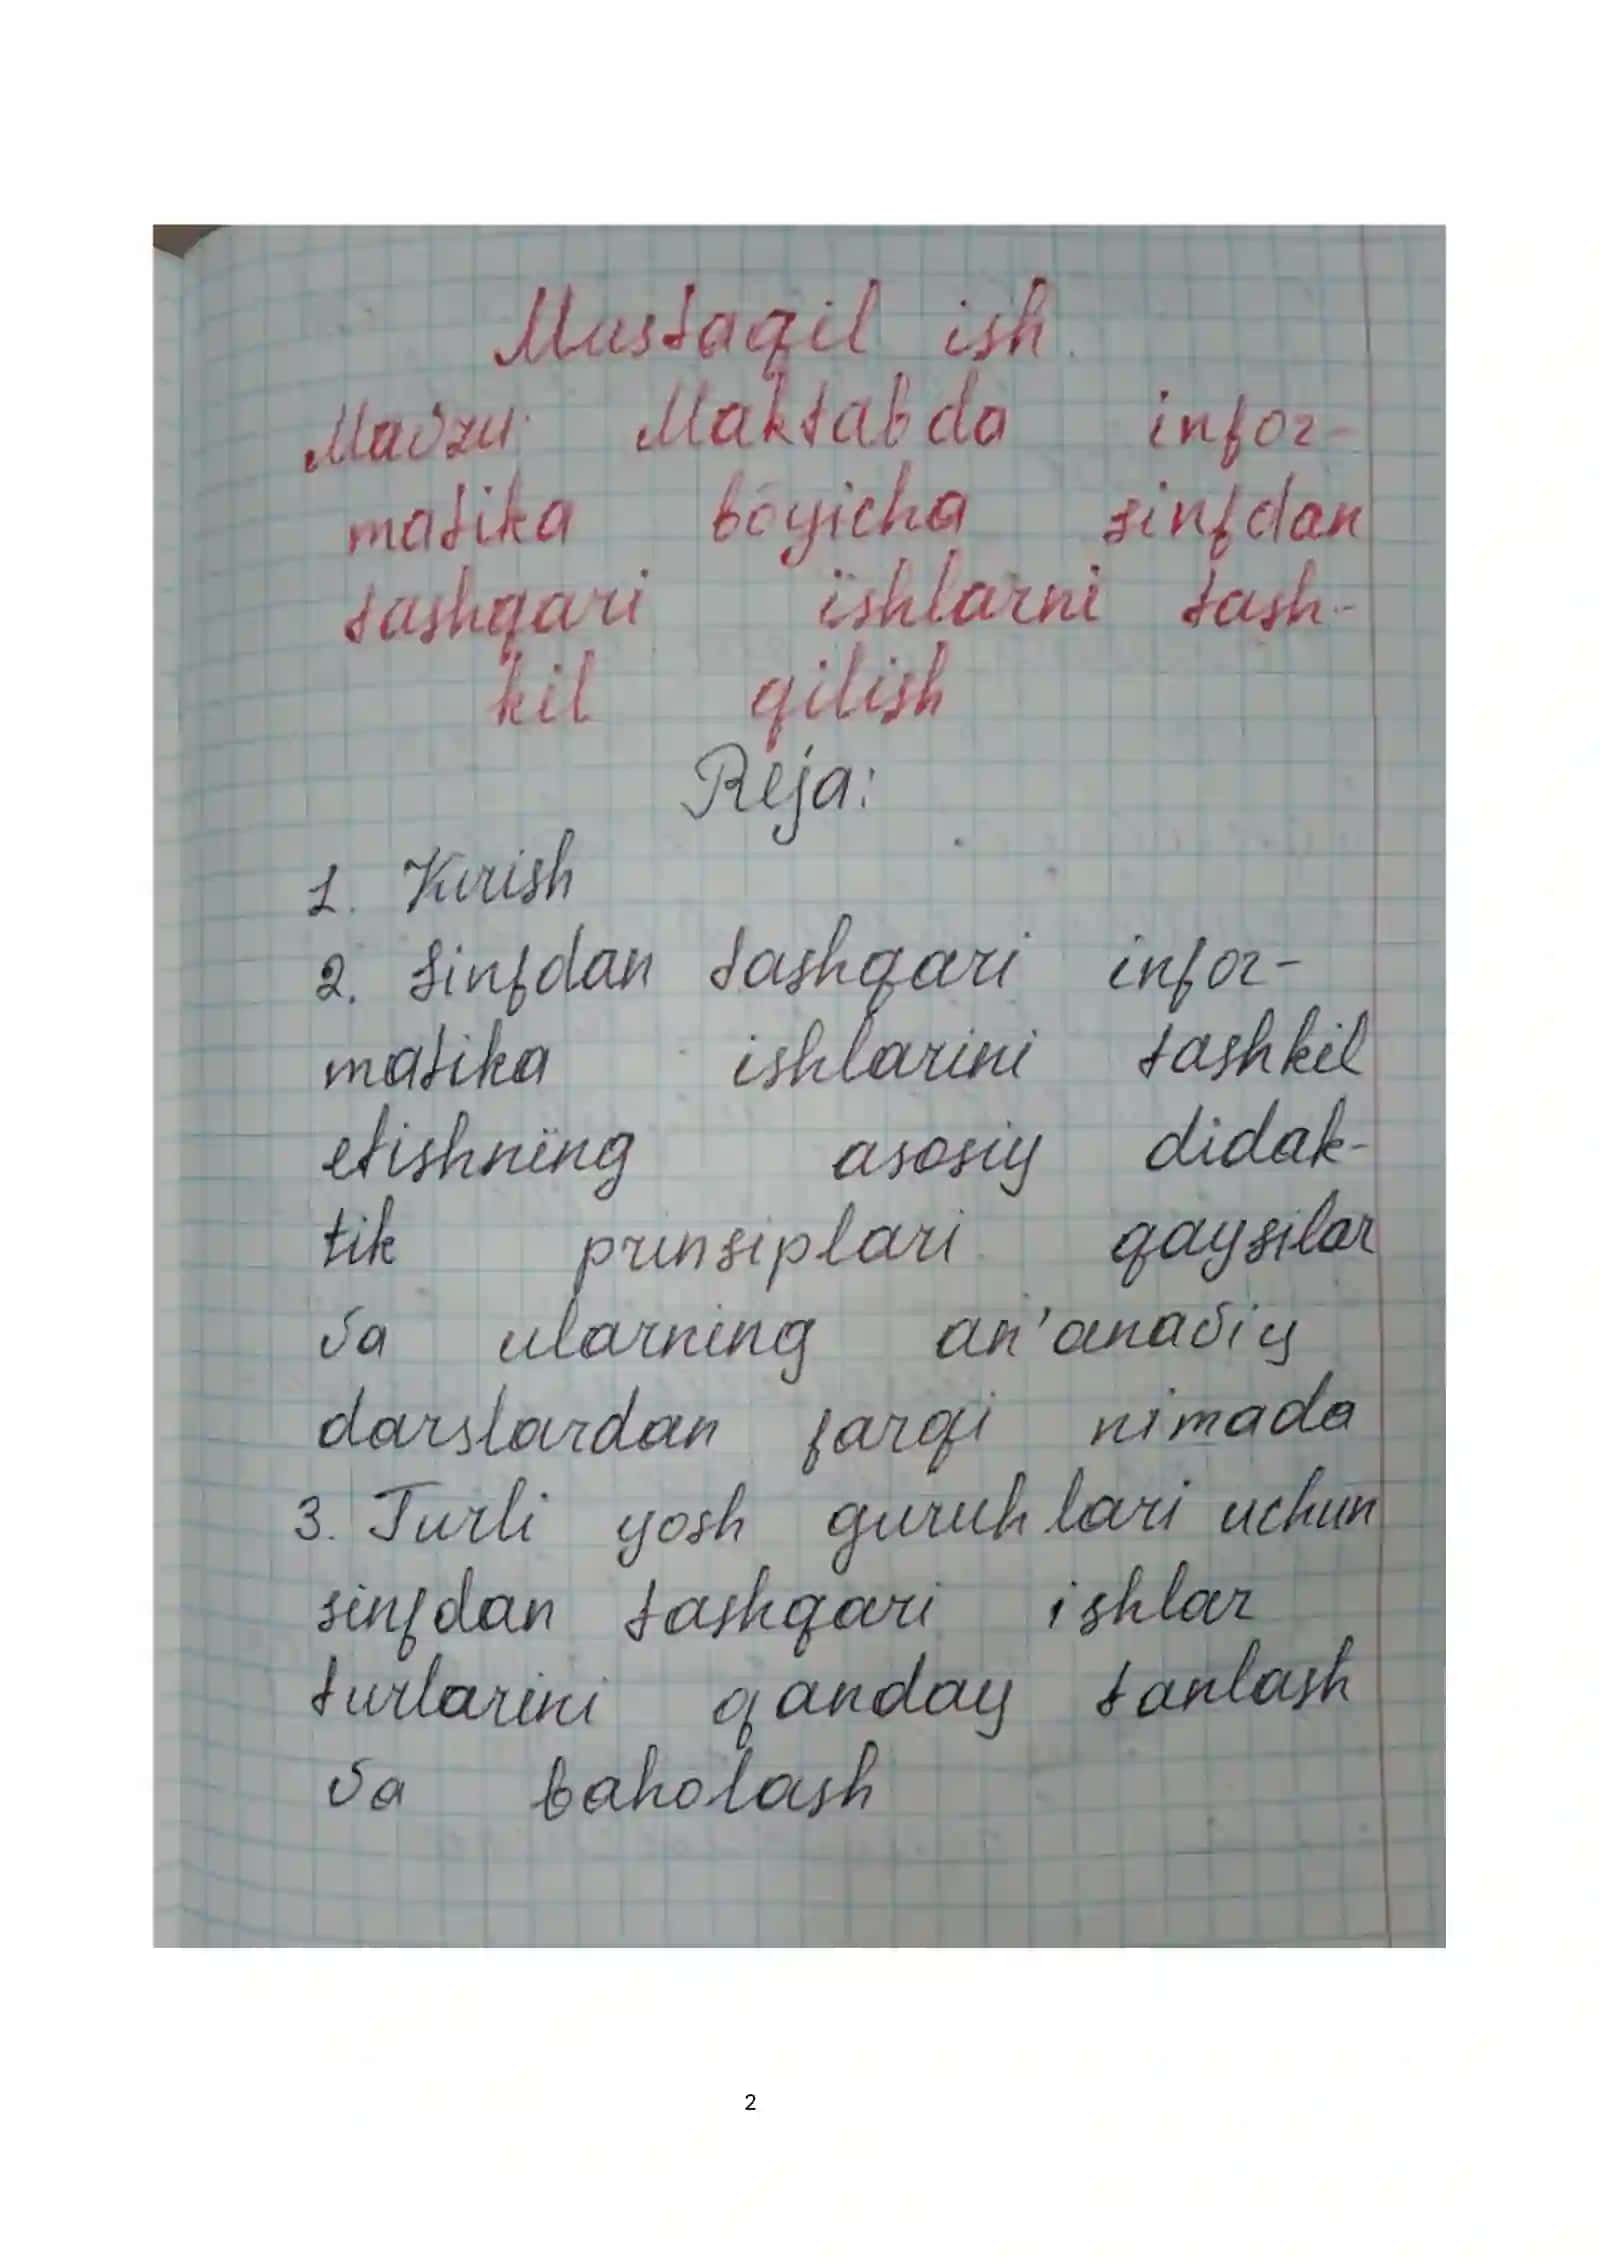 Mustaqil ish.
Mavzu: Maktabda infor-
matika bo'yicha sinfdan
tashqari ishlarni tash-
kil qilish
Reja:
1. Kirish
2. Sinfdan tashqari infor-
matika ishlarini tashkil
etishning asosiy didak-
tik prinsiplari qaysilar
va ularning an'anaviy
darslardan farqi nimada
3. Turli yosh guruhlari uchun
sinfdan tashqari ishlar
turlarini qanday tanlash
va baholash
2